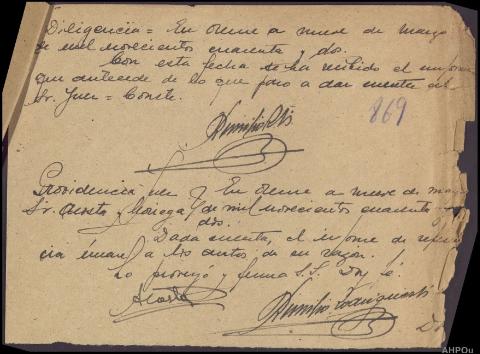 Diligencia = En Orense a nueve de marzo
de mil novecientos cuarenta y dos.
Con esta fecha se ha recibido el informe
que antecede de lo que paso a dar cuenta al
Sr. Juez = Conste.
869
Providencia Juez En Orense a nueve de marzo
Sr. Acosta y Noriega de mil novecientos cuarenta y
dos.
Dada cuenta, el informe de referen
cia únase a los autos de su razón.
Lo proveyó y firma S.S. Doy fé.
Acosta
AHPOu